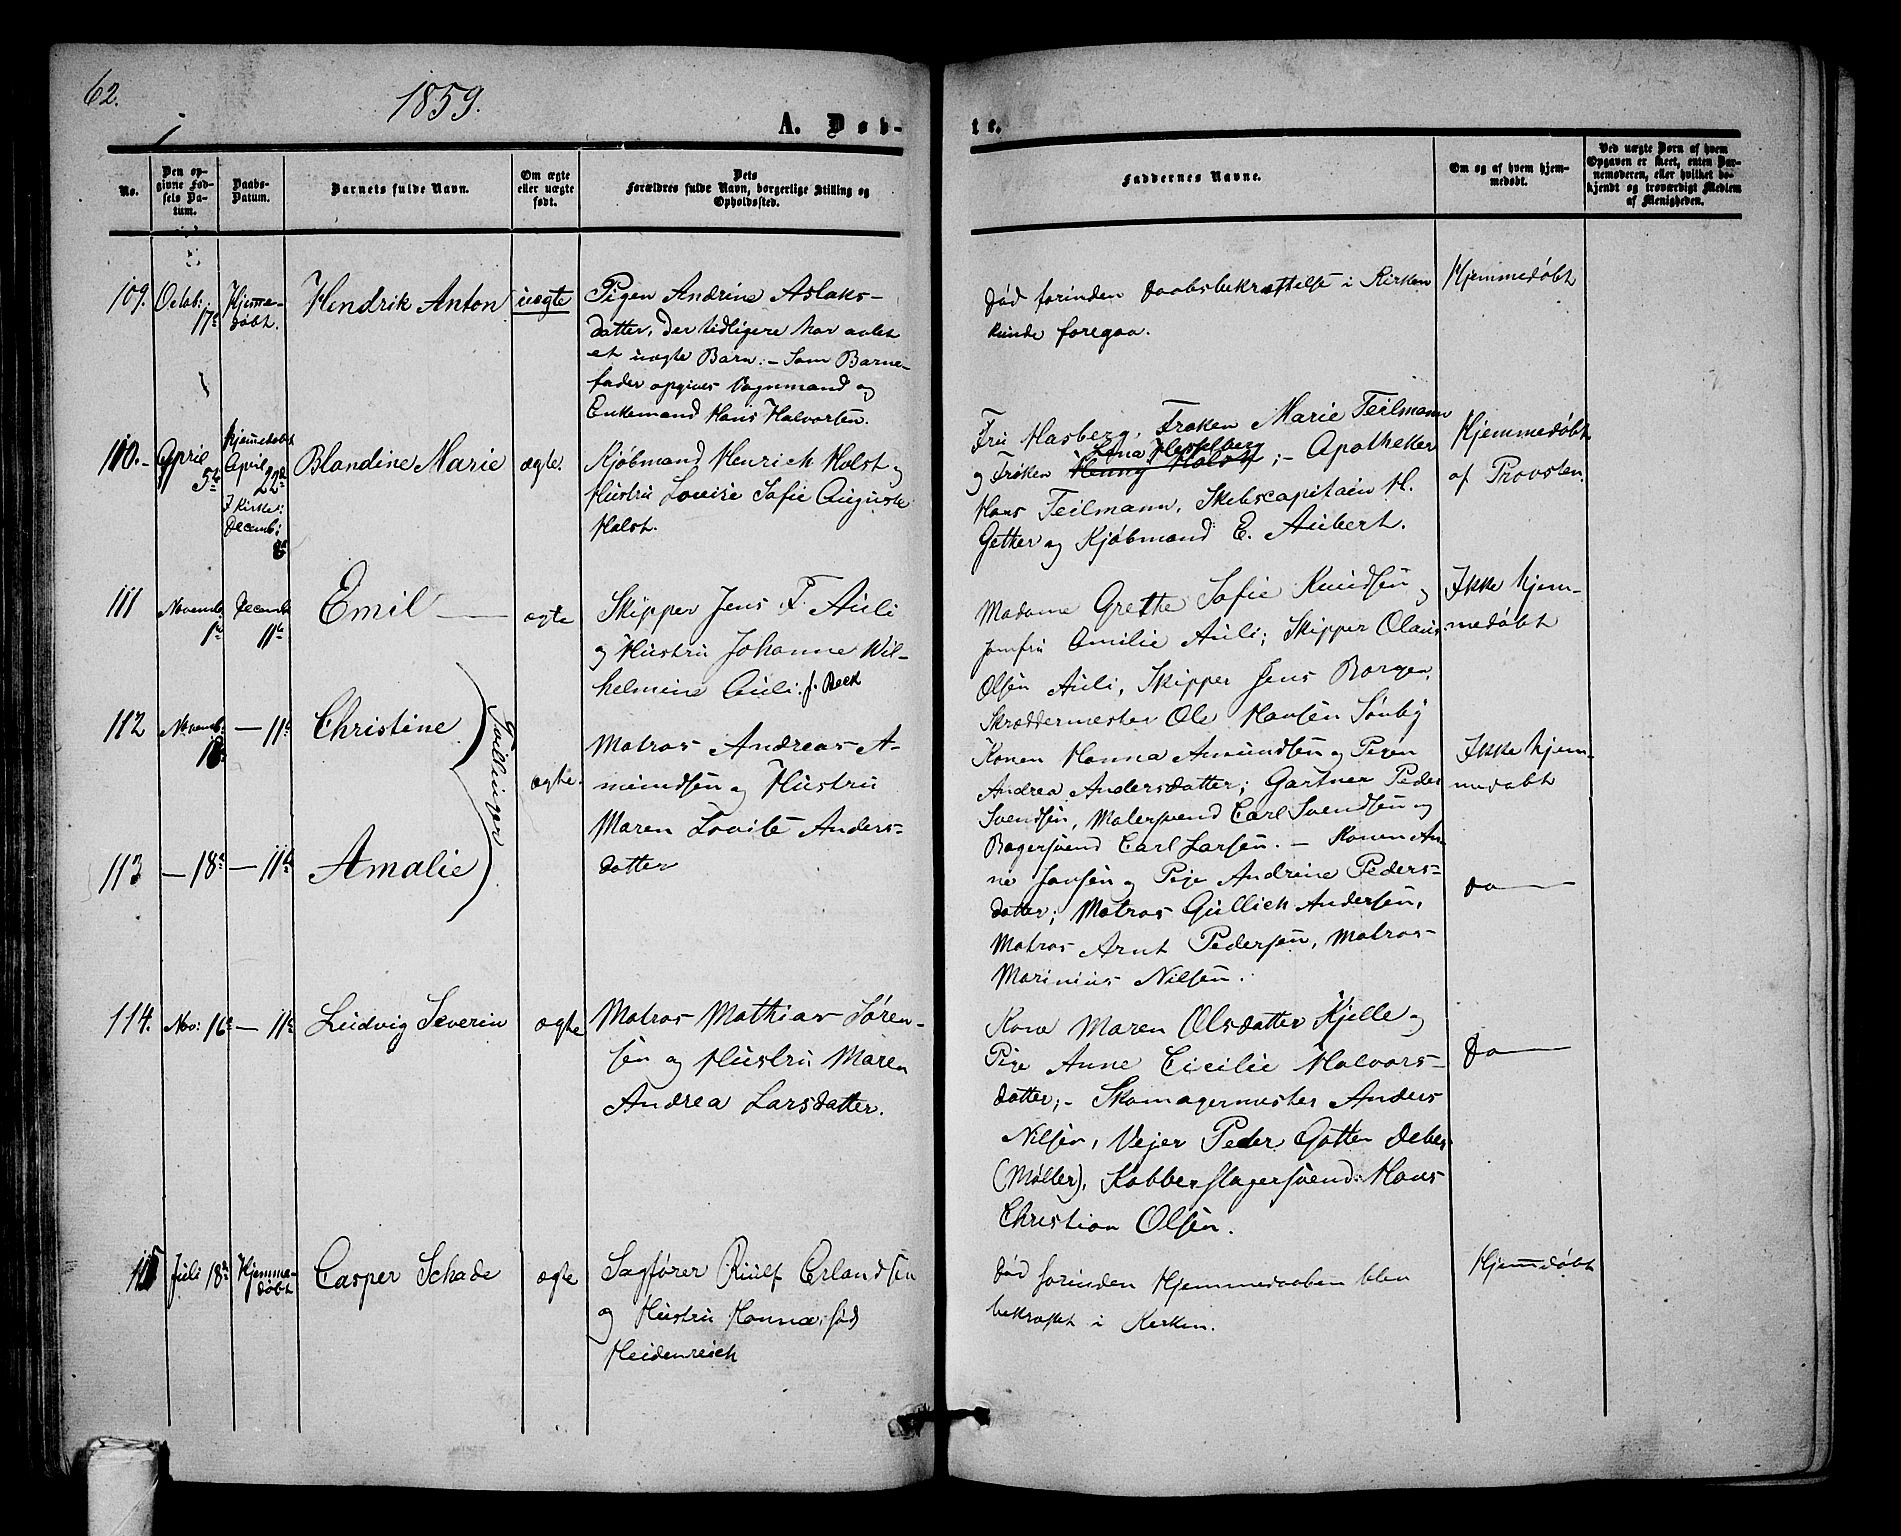 62.
1859.
A. Døb-
te.
No.
Den op-
givne Fød-
sels Da-
tum.
Daabs-
Datum.
Barnets fulde Navn.
Om ægte
eller uægte
født.
Dets
Forældres fulde Navn, borgerlige Stilling og
Opholdssted.
Faddernes Navne.
Om og af hvem hjem-
medøbt.
Ved uægte Børn af hvem
Opgaven er skeet, enten Bar-
nemoderen, eller hvilket be-
kjendt og troværdigt Medlem
af Menigheden.
109.
Octob:
17de
Hjemme-
døbt.
Hendrik Anton
uægte
Pigen Andrine Aslaks-
datter, der tidligere har avlet
et uægte Barn. - Som Barne-
fader opgives Vognmand og
Enkemand Hans Halvorsen.
Død forinden Daabsbekræftelse i Kirken
kunde foregaa.
Hjemmedøbt
110.-
April
5te
Hjemmedøbt
April
22de
I Kirke:
Decemb:
8de
Blandine Marie
ægte.
Kjøbmand Henrich Holst og
Hustru Lovise Sofie Auguste
Holst.
Fru Hasberg, Frøken Marie Teilmann
og Frøken Henny Holst Lina Hesselberg ;- Apotheker
Hans Teilmann, Skibscapitain H.
Getker og Kjøbmand E. Aubert.
Hjemmedøbt
af Provsten.
111
Novemb.
1te
Decemb
11te
Emil
ægte
Skipper Jens F. Auli
og Hustru Johanne Wil-
helmine Auli. f. Beck
Madame Grethe Sofie Knudsen og
Jomfru Amilie Auli; Skipper Olaus
Olsen Auli, Skipper Jens Borgen,
Skræddermester Ole Hansen Sønby
Ikke hjem-
medøbt
112
Novemb.
18de
- 11te
Christine
Tvillinger
ægte.
Matros Andreas A-
mundsen og Hustru
Maren Lovise Anders-
datter
Konen Hanna Amundsen og Pigen
Andrea Andersdatter; Gartner Peder
Svendsen, Malersvend Carl Svendsen og
Bagersvend Carl Larsen. - Konen An-
Ikke hjem-
medøbt
113
- 18de
- 11te
Amalie
ne Jansen og Pige Andrine Peders-
datter; Matros Gullich Andersen,
Matros Arnt Pedersen, Matros
Marinius Nilsen.
Do
114.
Nov: 16de
- 11te
Ludvig Severin
ægte
Matros Mathias Søren-
sen og Hustru Maren
Andrea Larsdatter.
Kone Maren Olsdatter Kjelle og
Pige Anne Cicilie Halvors-
datter;- Skomagermester Anders
Nilsen, Vejer Peder Gotten Deber
(Møller), Kobberslagersvend: Hans
Christian Olsen.
Do
115
Juli 18de
Hjemme-
døbt
Casper Schade
ægte
Sagfører Riulf Erlandsen
og Hustru Hanna, fød
Heidenreich
Død forinden Hjemmedaaben blev
bekræftet i Kirken.
Hjemmdøbt